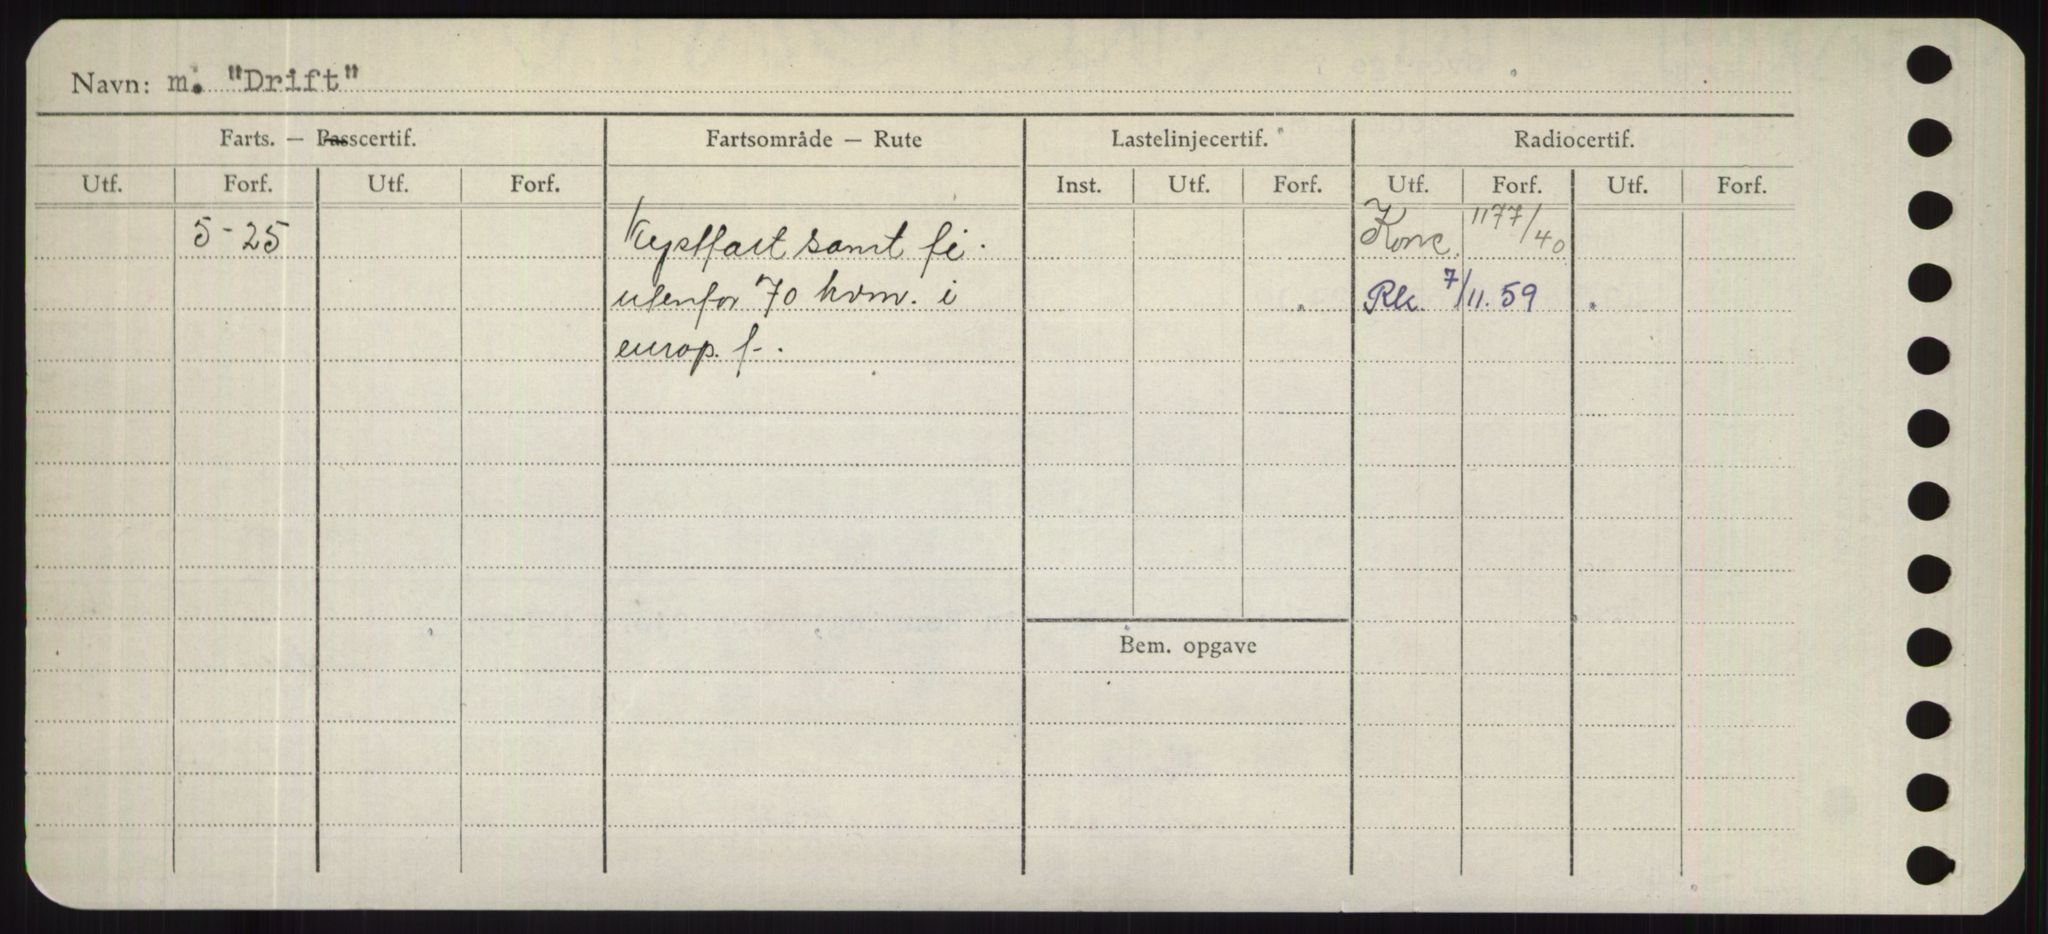 Navn: m. "Drift"
Farts. — Passcertif. Fartsområde — Rute Lastelinjecertif. Radiocertif.
Utf. Forf. Utf. Forf. Inst. Utf. Forf. Utf. Forf. Utf. Forf.
5-25 Kystfart samt fi. Konc. 1177/40
utenfor 70 kvm. i Rk. 7/11.59
europ. f-.
Bem. opgave